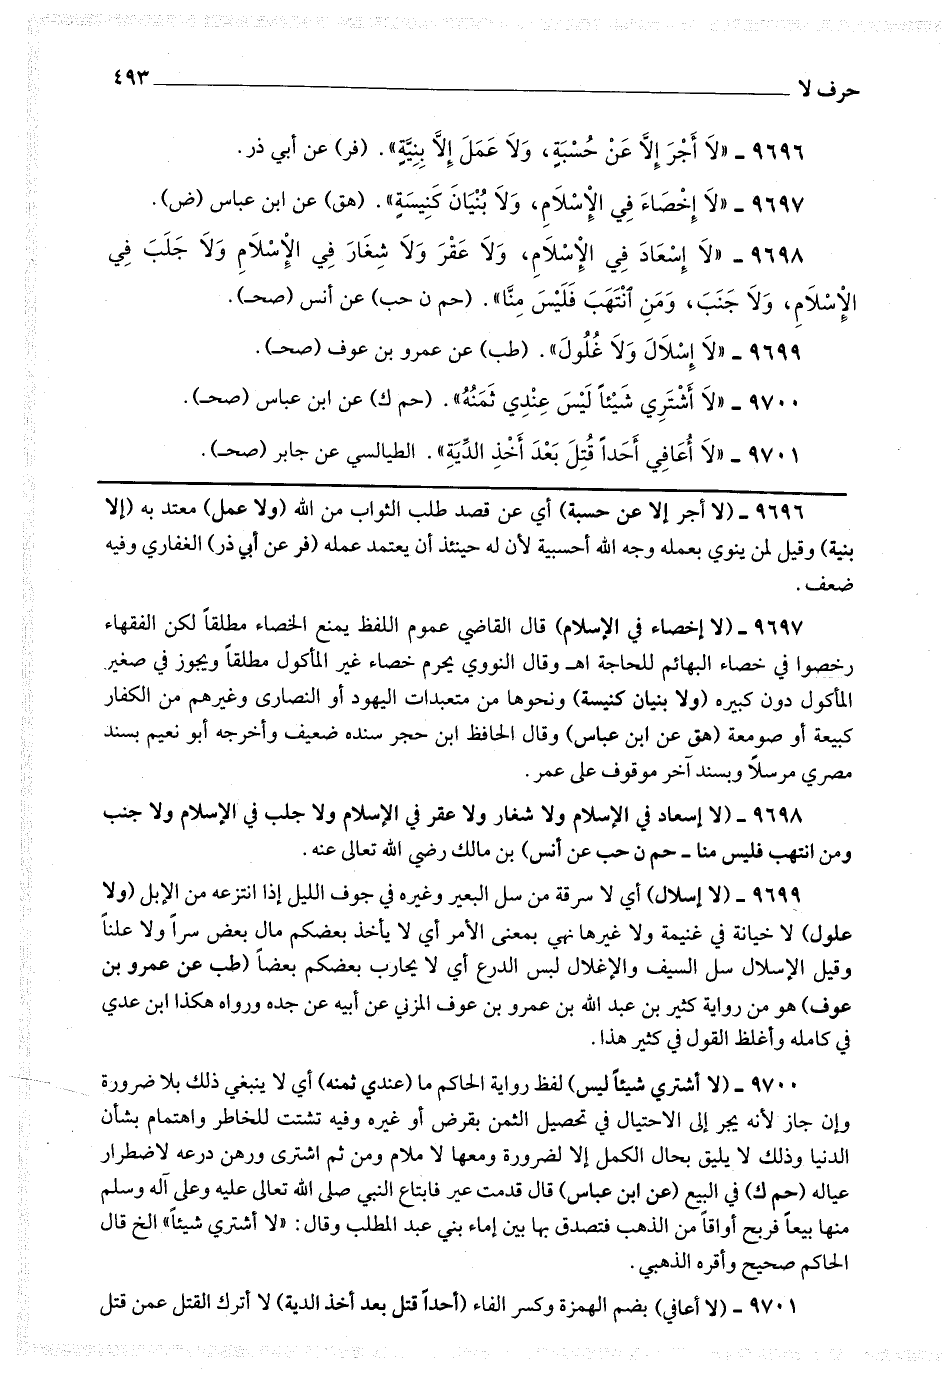 حرف لا ــــــــــــــــــــ ٤٩٣
٩٦٩٦ ـ «لاَ أَجْرَ إِلاَّ عَنْ حُسْبَةٍ، وَلاَ عَمَلَ إِلاَّ بِنِيَّةٍ». (فر) عن أبي ذر.
٩٦٩٧ ـ «لاَ إِخْصَاءَ فِي الْإِسْلاَمِ، وَلاَ بُنْيَانَ كَنِيسَةٍ». (هق) عن ابن عباس (ض).
٩٦٩٨ ـ «لاَ إِسْعَادَ فِي الْإِسْلاَمِ، وَلاَ عَقْرَ وَلاَ شِغَارَ فِي الْإِسْلاَمِ وَلاَ جَلَبَ فِي
الْإِسْلاَمِ، وَلاَ جَنَبَ، وَمَنِ ٱنْتَهَبَ فَلَيْسَ مِنَّا». (حم ن حب) عن أنس (صحـ).
٩٦٩٩ ـ «لاَ إِسْلاَلَ وَلاَ غُلُولَ». (طب) عن عمرو بن عوف (صحـ).
٩٧٠٠ ـ «لاَ أَشْتَرِي شَيْئاً لَيْسَ عِنْدِي ثَمَنُهُ». (حم ك) عن ابن عباس (صحـ).
٩٧٠١ ـ «لاَ أُعَافِي أَحَداً قُتِلَ بَعْدَ أَخْذِ الدِّيَةِ». الطيالسي عن جابر (صحـ).
٩٦٩٦ ـ (لا أجر إلا عن حسبة) أي عن قصد طلب الثواب من الله (ولا عمل) معتد به (إلا
بنية) وقيل لمن ينوي بعمله وجه الله أحسبية لأن له حينئذ أن يعتمد عمله (فر عن أبي ذر) الغفاري وفيه
ضعف.
٩٦٩٧ ـ (لا إخصاء في الإسلام) قال القاضي عموم اللفظ يمنع الخصاء مطلقاً لكن الفقهاء
رخصوا في خصاء البهائم للحاجة اهـ وقال النووي يحرم خصاء غير المأكول مطلقاً ويجوز في صغير
المأكول دون كبيره (ولا بنيان كنيسة) ونحوها من متعبدات اليهود أو النصارى وغيرهم من الكفار
كبيعة أو صومعة (هق عن ابن عباس) وقال الحافظ ابن حجر سنده ضعيف وأخرجه أبو نعيم بسند
مصري مرسلاً وبسند آخر موقوف على عمر.
٩٦٩٨ ـ (لا إسعاد في الإسلام ولا شغار ولا عقر في الإسلام ولا جلب في الإسلام ولا جنب
ومن انتهب فليس منا ـ حم ن حب عن أنس) بن مالك رضي الله تعالى عنه.
٩٦٩٩ ـ (لا إسلال) أي لا سرقة من سل البعير وغيره في جوف الليل إذا انتزعه من الإبل (ولا
علول) لا خيانة في غنيمة ولا غيرها نهي بمعنى الأمر أي لا يأخذ بعضكم مال بعض سراً ولا علناً
وقيل الإسلال سل السيف والإغلال لبس الدرع أي لا يحارب بعضكم بعضاً (طب عن عمرو بن
عوف) هو من رواية كثير بن عبد الله بن عمرو بن عوف المزني عن أبيه عن جده ورواه هكذا ابن عدي
في كامله وأغلظ القول في كثير هذا.
٩٧٠٠ ـ (لا أشتري شيئاً ليس) لفظ رواية الحاكم ما (عندي ثمنه) أي لا ينبغي ذلك بلا ضرورة
وإن جاز لأنه يجر إلى الاحتيال في تحصيل الثمن بقرض أو غيره وفيه تشتت للخاطر واهتمام بشأن
الدنيا وذلك لا يليق بحال الكمل إلا لضرورة ومعها لا ملام ومن ثم اشترى ورهن درعه لاضطرار
عياله (حم ك) في البيع (عن ابن عباس) قال قدمت عير فابتاع النبي صلى الله تعالى عليه وعلى آله وسلم
منها بيعاً فربح أواقاً من الذهب فتصدق بها بين إماء بني عبد المطلب وقال: «لا أشتري شيئاً» الخ قال
الحاكم صحيح وأقره الذهبي.
٩٧٠١ ـ (لا أعافي) بضم الهمزة وكسر الفاء (أحداً قتل بعد أخذ الدية) لا أترك القتل عمن قتل